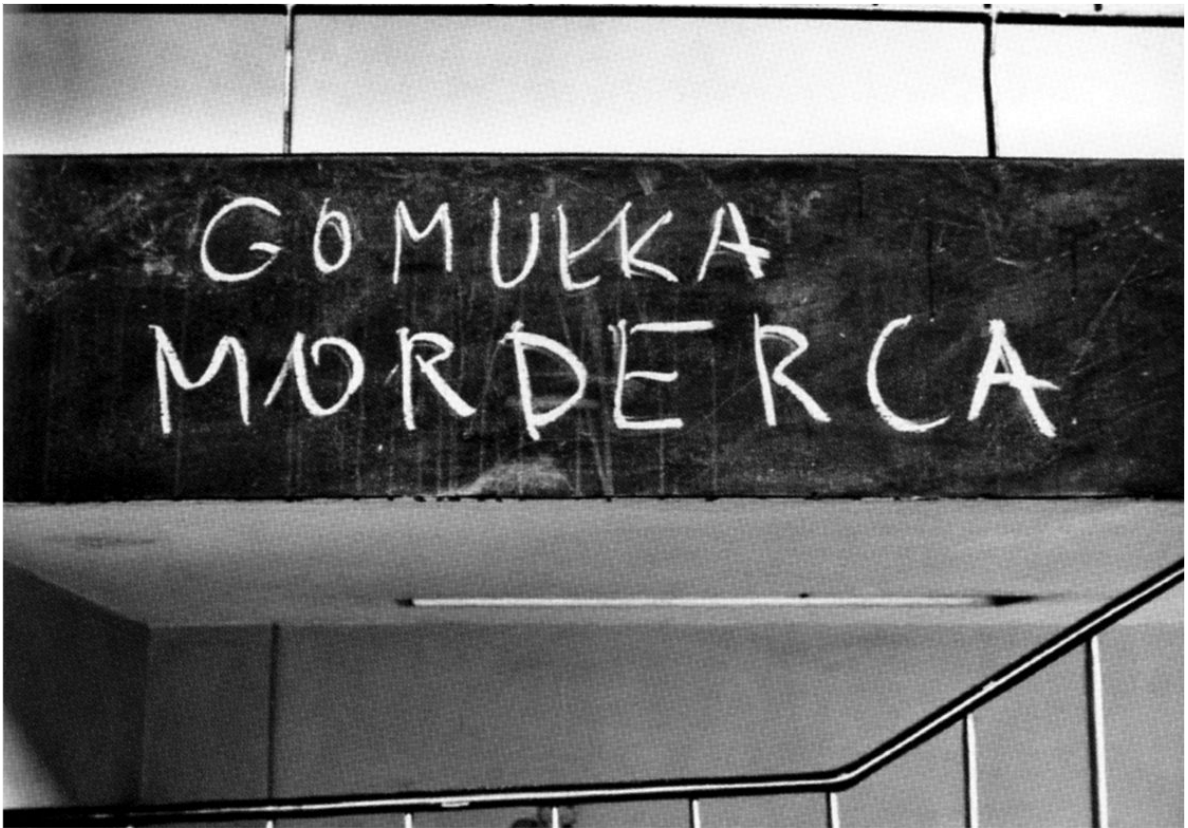 GOMUŁKA
MORDERCA